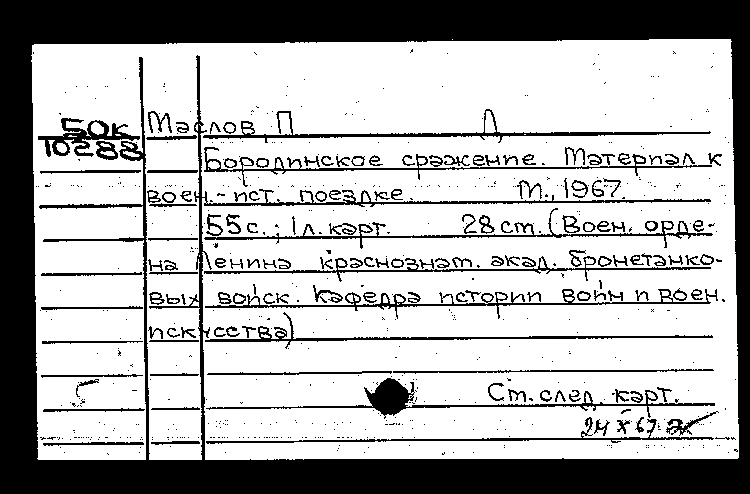 50к Маслов, П Д
10288
Бородинское сражение. Материал к
воен.-ист. поездке. М., 1967.
55 с.; 1 л. карт. 28 см. (Воен. орде-
на Ленина краснознам. акад. бронетанко-
вых войск. Кафедра истории войн и воен.
искусства)
Ст. след. карт.
24 X 67